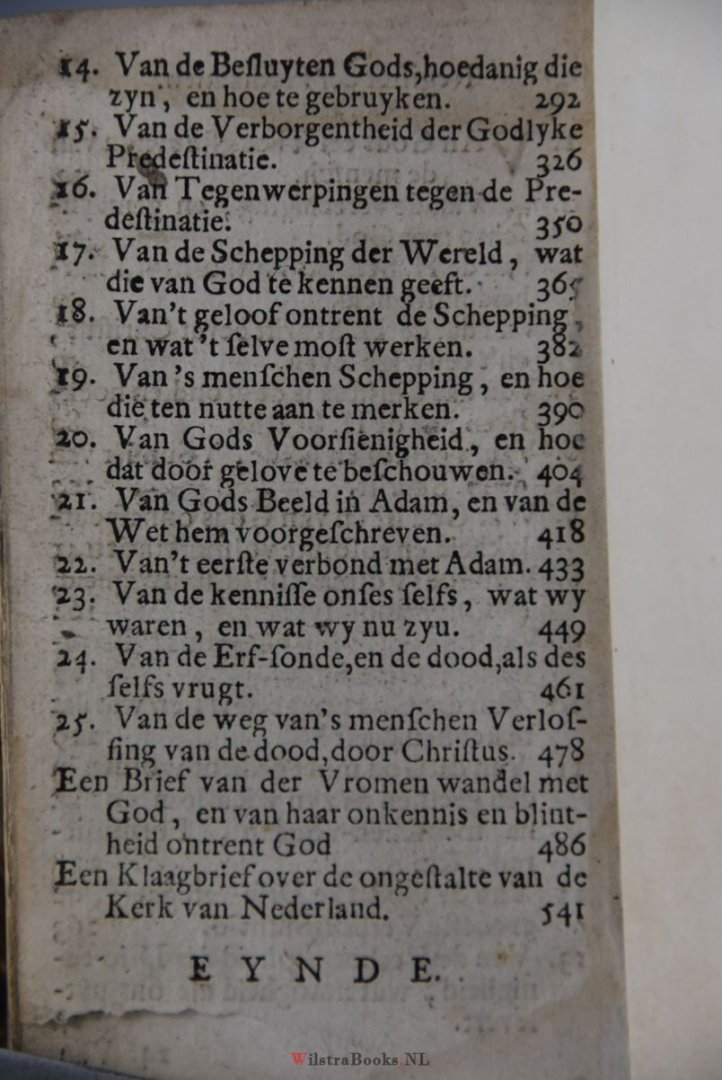 14. Van de Beſluyten Gods, hoedanig die
zyn, en hoe te gebruyken. 292
15. Van de Verborgentheid der Godlyke
Predeſtinatie. 326
16. Van Tegenwerpingen tegen de Pre-
deſtinatie. 350
17. Van de Schepping der Wereld, wat
die van God te kennen geeft. 365
18. Van't geloof ontrent de Schepping,
en wat 't ſelve moſt werken. 382
19. Van 's menſchen Schepping, en hoe
die ten nutte aan te merken. 390
20. Van Gods Voorſienigheid, en hoe
dat door gelove te beſchouwen. 404
21. Van Gods Beeld in Adam, en van de
Wet hem voorgeſchreven. 418
22. Van't eerſte verbond met Adam. 433
23. Van de kenniſſe onſes ſelfs, wat wy
waren, en wat wy nu zyu. 449
24. Van de Erf-ſonde, en de dood, als des
ſelfs vrugt. 461
25. Van de weg van's menſchen Verloſ-
ſing van de dood, door Chriſtus. 478
Een Brief van der Vromen wandel met
God, en van haar onkennis en blint-
heid ontrent God 486
Een Klaagbrief over de ongeſtalte van de
Kerk van Nederland. 541
EYNDE.
WilstraBooks.NL